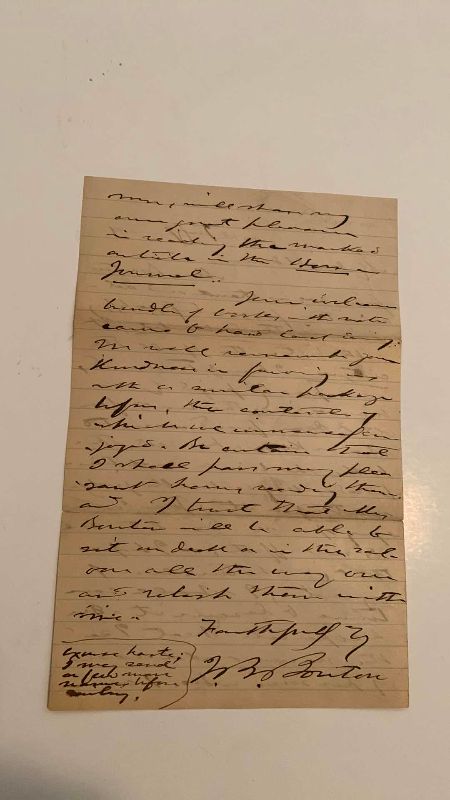 will share my
own great pleasure
in reading the marked
article in the Home
Journal.
Your welcome
bundle of books
came to hand last
We well remember your
kindness in favoring us
with a similar package
before, the contents of
which we immensely en
joyed. Be certain that
I shall pass many plea
sant hours reading them
and I trust that Mrs
Bouton will be able to
sit on deck or in the sal
oon all the way over
and relish them with
me.
Faithfully
J. B. Bouton
excuse haste;
I may send
a few more
names before